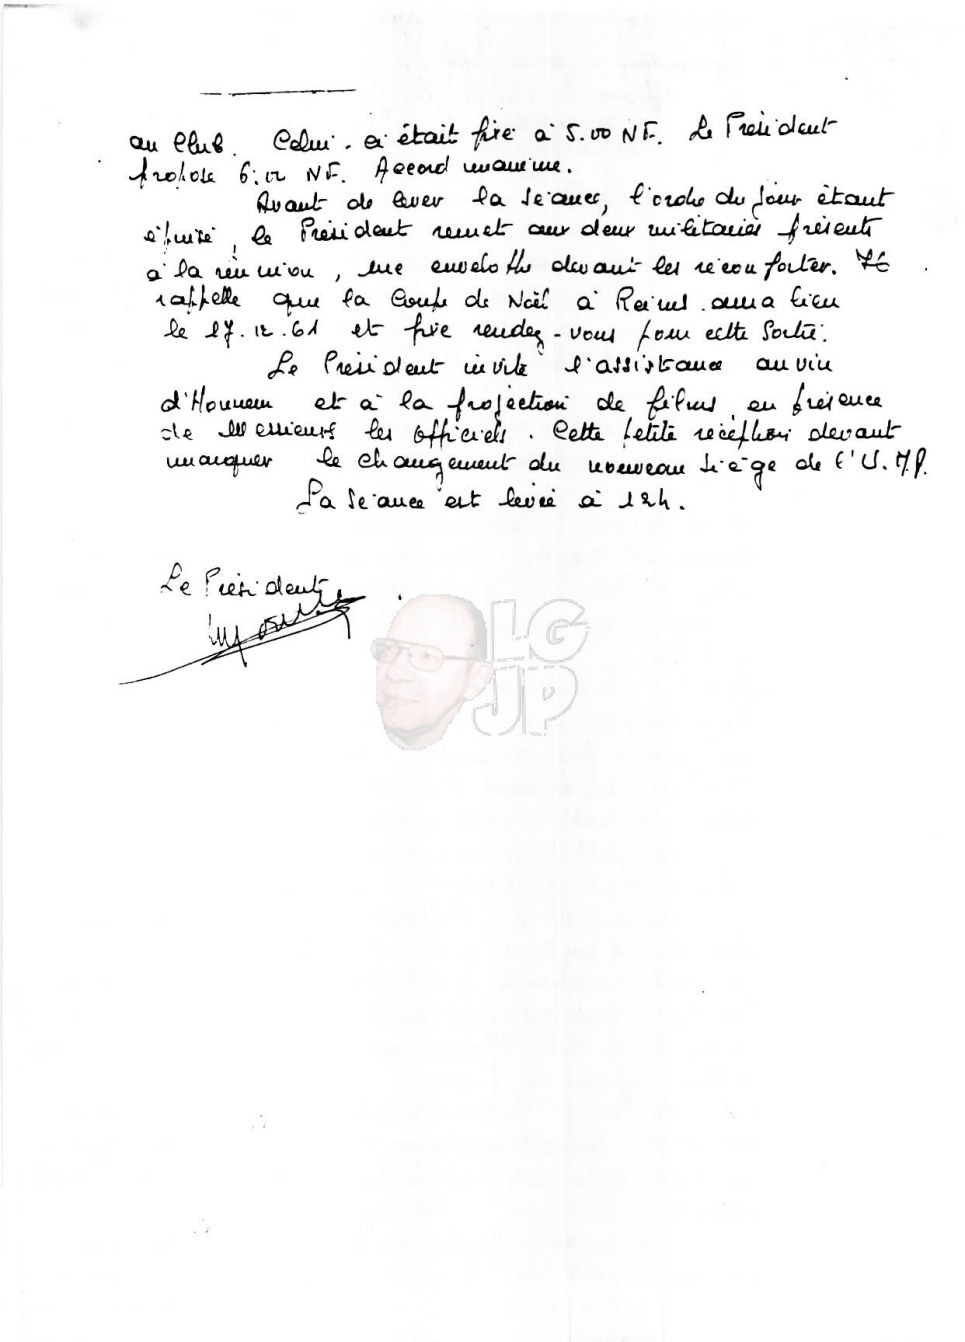 au Club. Celui-ci était fixé à 5.00 NF. Le Président
propose 6.00 NF. Accord unanime.
Avant de lever la séance, l'ordre du jour étant
épuisé, le Président remet aux deux militaires présents
à la réunion, une enveloppe devant les réconforter. Il
rappelle que la Coupe de Noël à Reims aura lieu
le 17.12.61 et fixe rendez-vous pour cette sortie.
Le Président invite l'assistance au vin
d'Honneur et à la projection de films, en présence
de Messieurs les Officiels. Cette petite réception devant
marquer le changement du nouveau siège de l'U.M.P.
La séance est levée à 12h.
Le Président
LG
JP